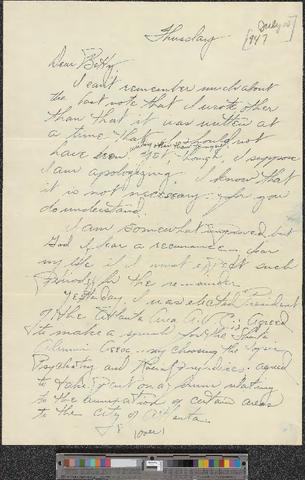 Thursday
[July 10
1947]
Dear Betty,
I can't remember much about
the last note that I wrote other
than that it was written at
a time that I should not
have been writing other than to you
yet though, I suppose
I am apologizing. I know that
it is not necessary - for you
do understand.
I am somewhat improved but
and I fear a recurrence, dear
my life if I must expect such
periods for the remainder.
Yesterday, I was elected President
of the Atlanta Area A.V.C.; Agreed
to make a speech for the State
Alumni Assoc. - my choosing the topic
Psychiatry and Racial Prejudice; agreed
to take part on a forum relating
to the annexation of certain areas
to the city of Atlanta.
(over)